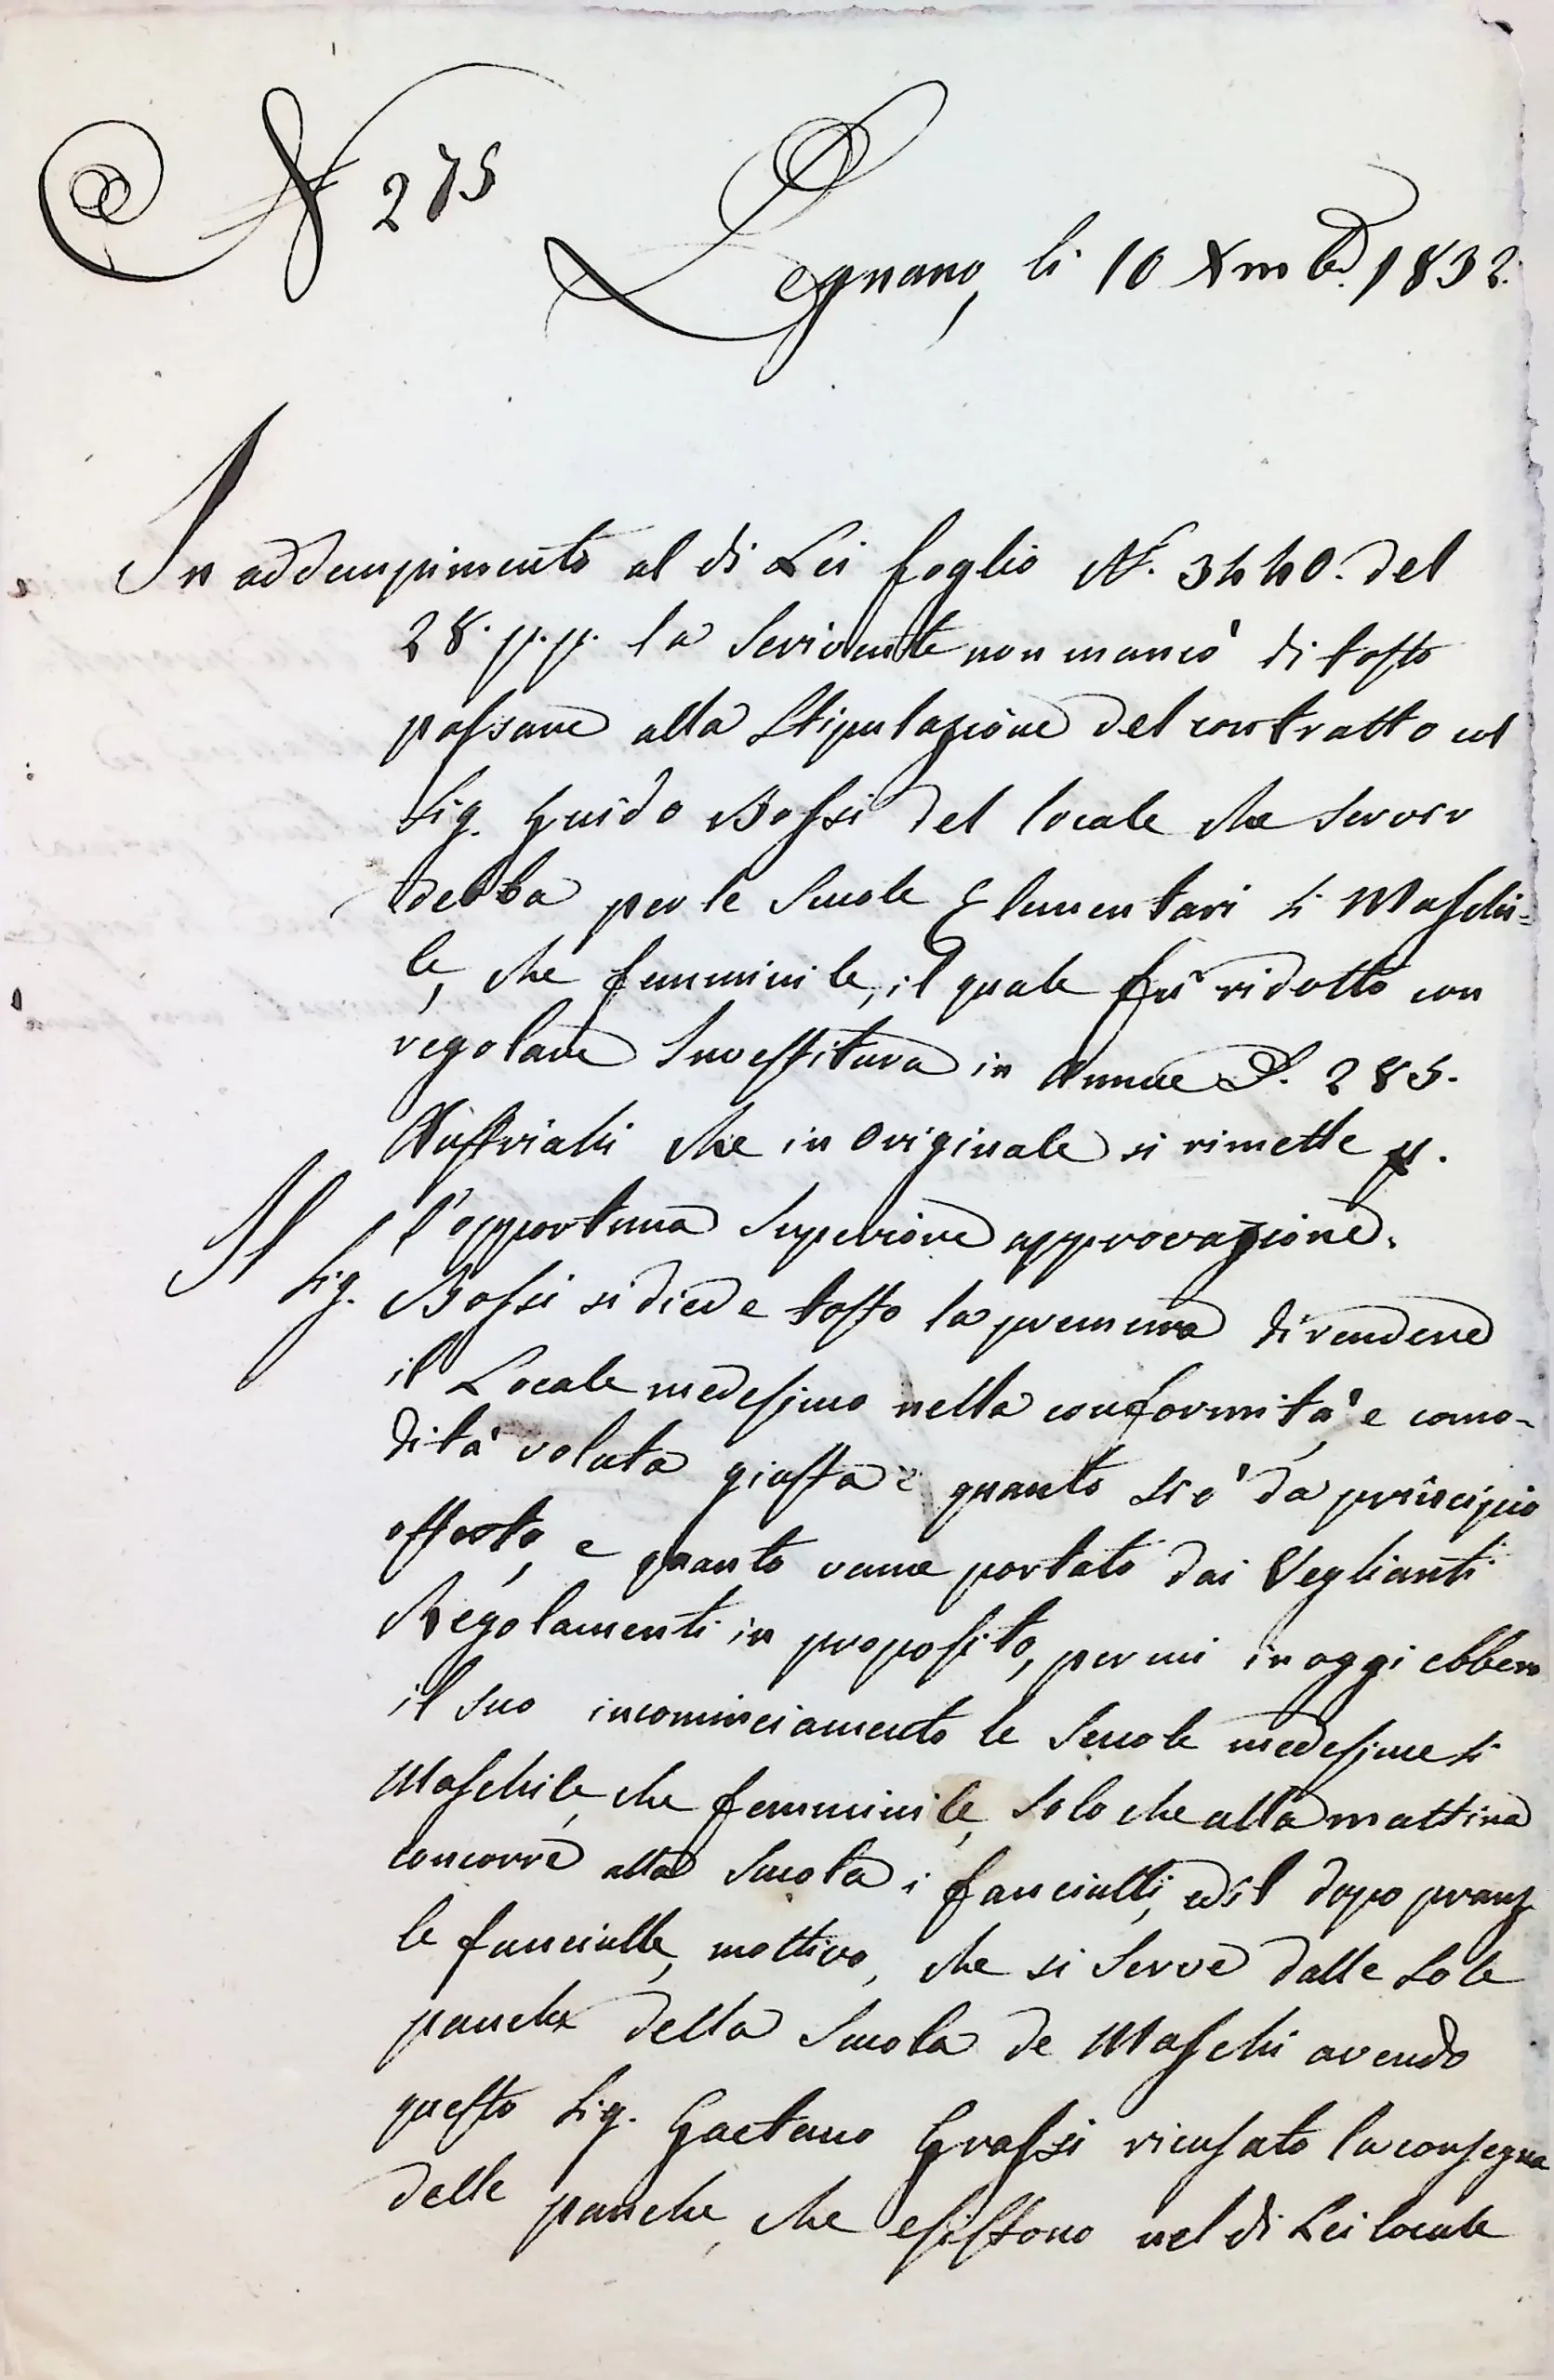 N 275
Legnano, li 10 Xmbr. 1832.
In addempimento al di Lei foglio N. 3440. del
28. p.p. la Scrivente non mancò di tosto
passare alla Stipulazione del contratto col
Sig. Guido Bossi del locale che servir
debba per le Scuole Elementari sì Maschi-
le, che femminile, il quale fù ridotto con
regolare Investitura in Annue L. 285.
Austriache che in Originale si rimette p.
l'opportuna Superiore approvazione.
Il Sig. Bossi si diede tosto la premura di rendere
il Locale medesimo nella conformità, e como-
dità voluta giusta quanto si è da principio
offerto, e quanto venne portato dai Veglianti
Regolamenti in proposito, per cui in oggi ebbero
il suo incominciamento le Scuole medesime sì
Maschile, che femminile, solo che alla mattina
concorre alla Scuola i fanciulli, ed il dopo pranz
le fanciulle, mottivo, che si serve dalle sole
panche della Scuola de Maschi avendo
questo Sig. Gaetano Grassi ricusato la consegna
delle panche, che esistono nel di Lei locale